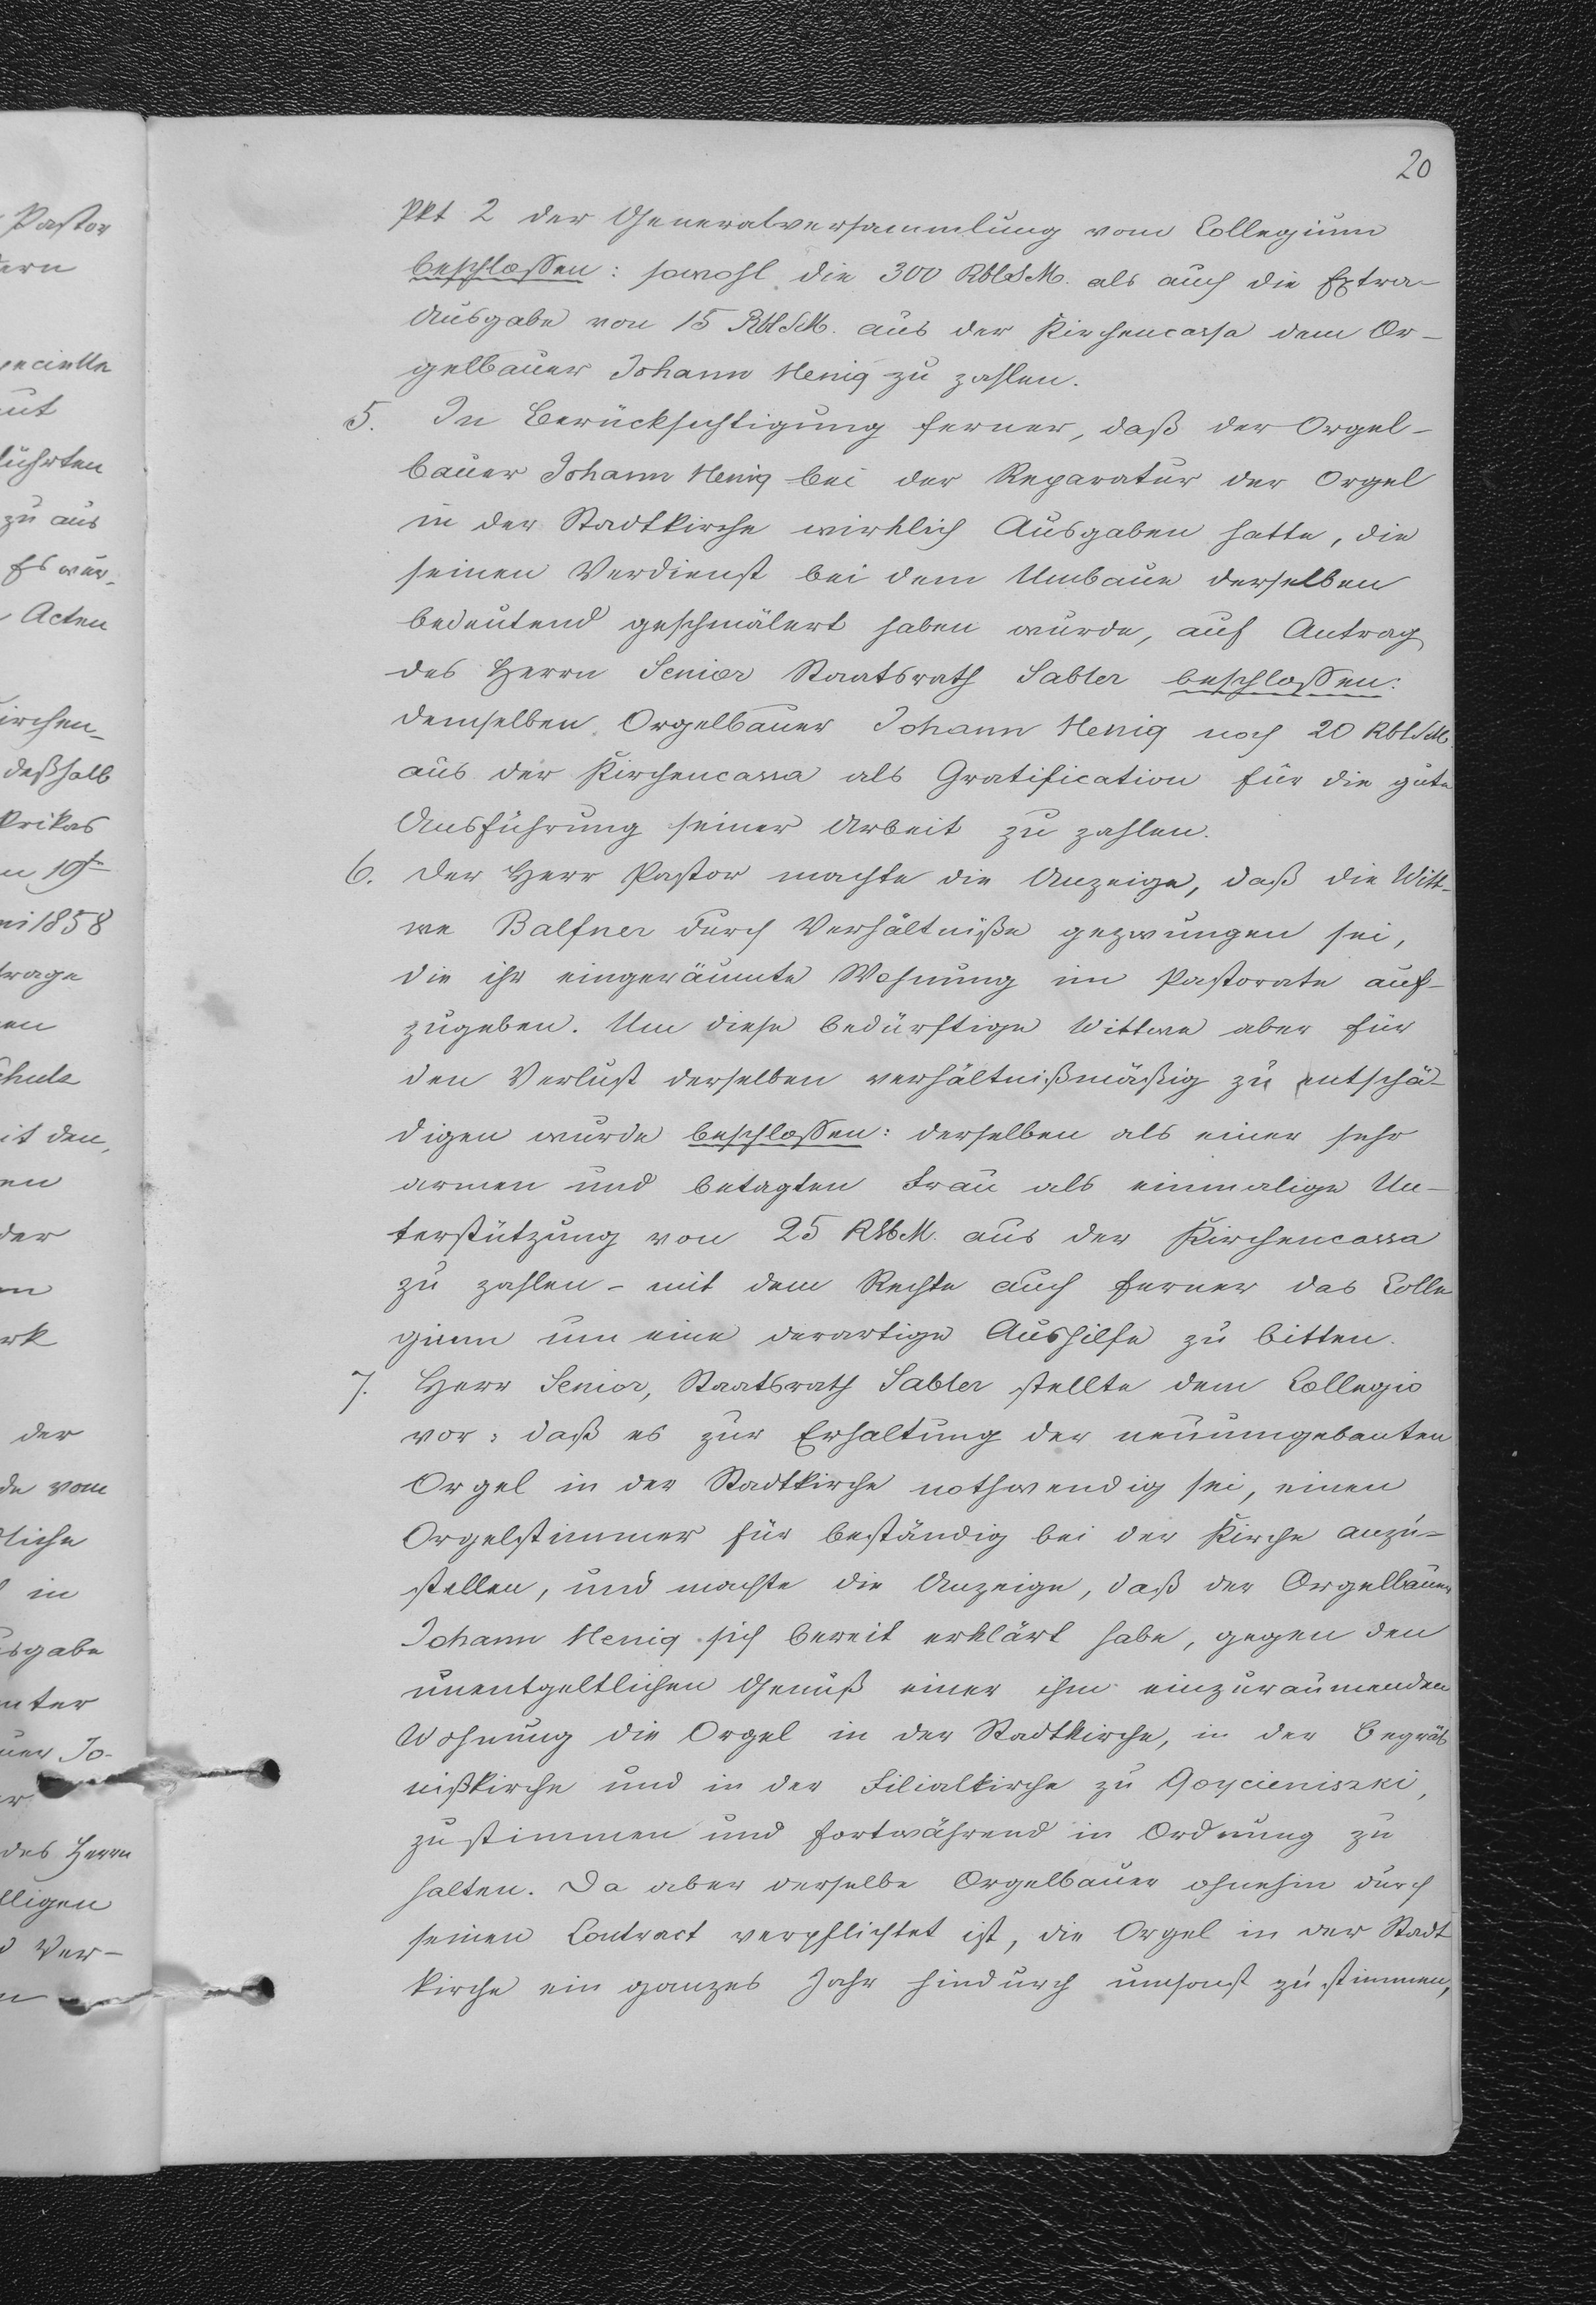 20
Pastor
ern
pecielle
ut
führten
zu aus
Es wur-
Acten
irchen-
deßhalb
ni 1858
trage
en
it den
en
der
rk
der
de vom
in
usgabe
nter
uer Jo-
er
des Herrn
lligen
d Ver-
Pkt 2 der Generalversammlung vom Collegium
beschlossen: sowohl die 300 RblSM. als auch die Extra-
Ausgabe von 15 RblSM. aus der Kirchencassa dem Or-
gelbauer Johann Henig zu zahlen.
5. In Berücksichtigung ferner, daß der Orgel-
bauer Johann Henig bei der Reparatur der Orgel
in der Stadtkirche wirklich Ausgaben hatte, die
seinen Verdienst bei dem Umbaue derselben
bedeutend geschmälert haben wurde, auf Antrag
des Herrn Senior Staatsrath Sabler beschlossen:
demselben Orgelbauer Johann Henig noch 20 RblSM.
aus der Kirchencassa als Gratification für die gute
Ausführung seiner Arbeit zu zahlen.
6. Der Herr Pastor machte die Anzeige, daß die Witt-
we Balfner durch Verhältniße gezwungen sei,
die ihr eingeräumte Wohnung im Pastorate auf-
zugeben. Um diese bedürftige Wittwe aber für
den Verlust derselben verhältnißmäßig zu entschä-
digen wurde beschlossen: derselben als einer sehr
armen und betagten Frau als einmalige Un-
terstützung von 25 RblSM. aus der Kirchencassa
zu zahlen - mit dem Rechte auch ferner das Colle
gium um eine derartige Aushilfe zu bitten.
7. Herr Senior, Staatsrath Sabler stellte dem Collegio
vor: daß es zur Erhaltung der neuumgebauten
Orgel in der Stadtkirche nothwendig sei, einen
Orgelstimmer für beständig bei der Kirche anzu-
stellen, und machte die Anzeige, daß der Orgelbauer
Johann Henig sich bereit erklärt habe, gegen den
unentgeltlichen Genuß einer ihm einzuräumenden
Wohnung die Orgel in der Stadtkirche, in der Begräb
nißkirche und in der Filialkirche zu Goycieniszki,
zu stimmen und fortwährend in Ordnung zu
halten. Da aber derselbe Orgelbauer ohnehin durch
seinen Contract verpflichtet ist, die Orgel in der Stadt
kirche ein ganzes Jahr hindurch umsonst zu stimmen,